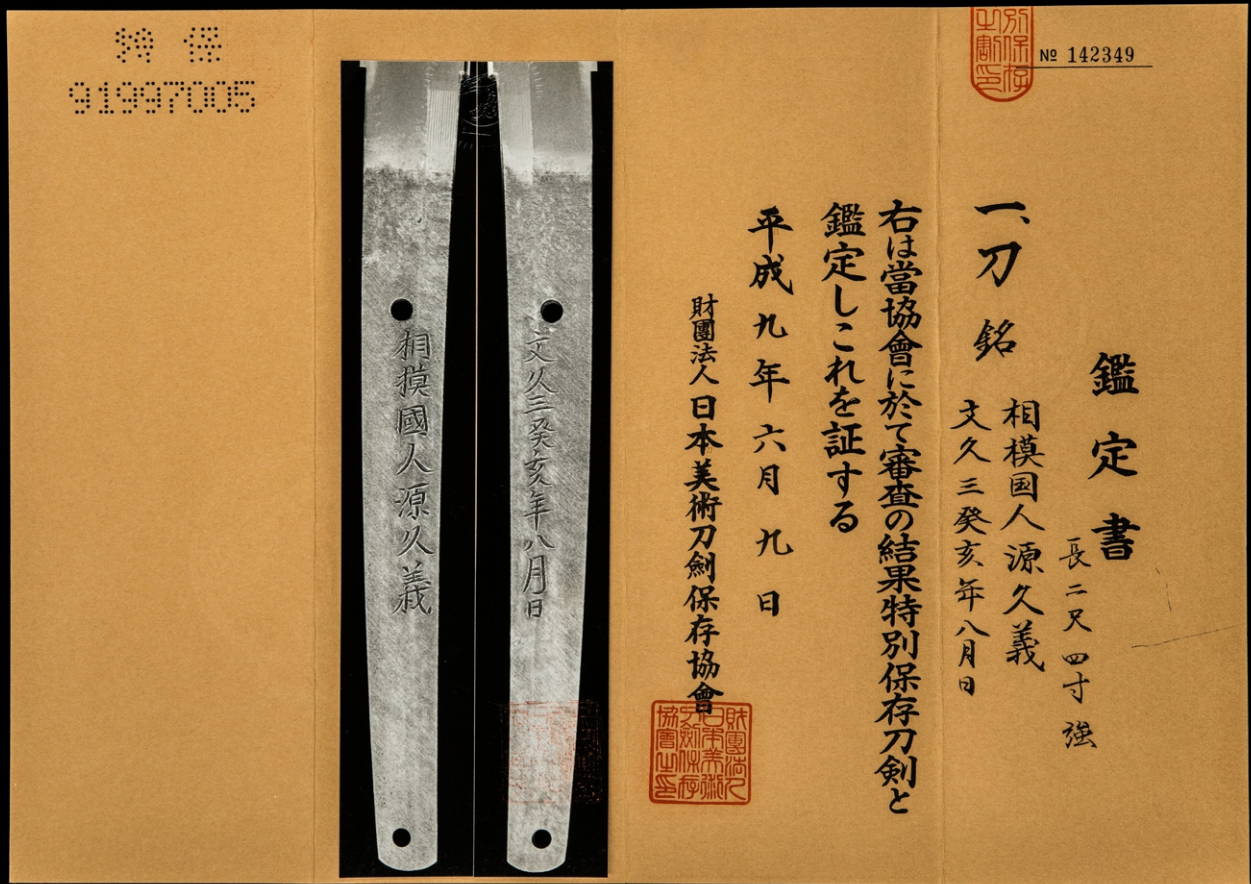 № 142349
鑑定書
一、刀 銘 相模国人源久義
文久三癸亥年八月日
長二尺四寸強
右は當協會に於て審査の結果特別保存刀剣と
鑑定しこれを証する
平成九年六月九日
財團法人日本美術刀剣保存協會
文久三癸亥年八月日
相摸國人源久義
特保
91997005